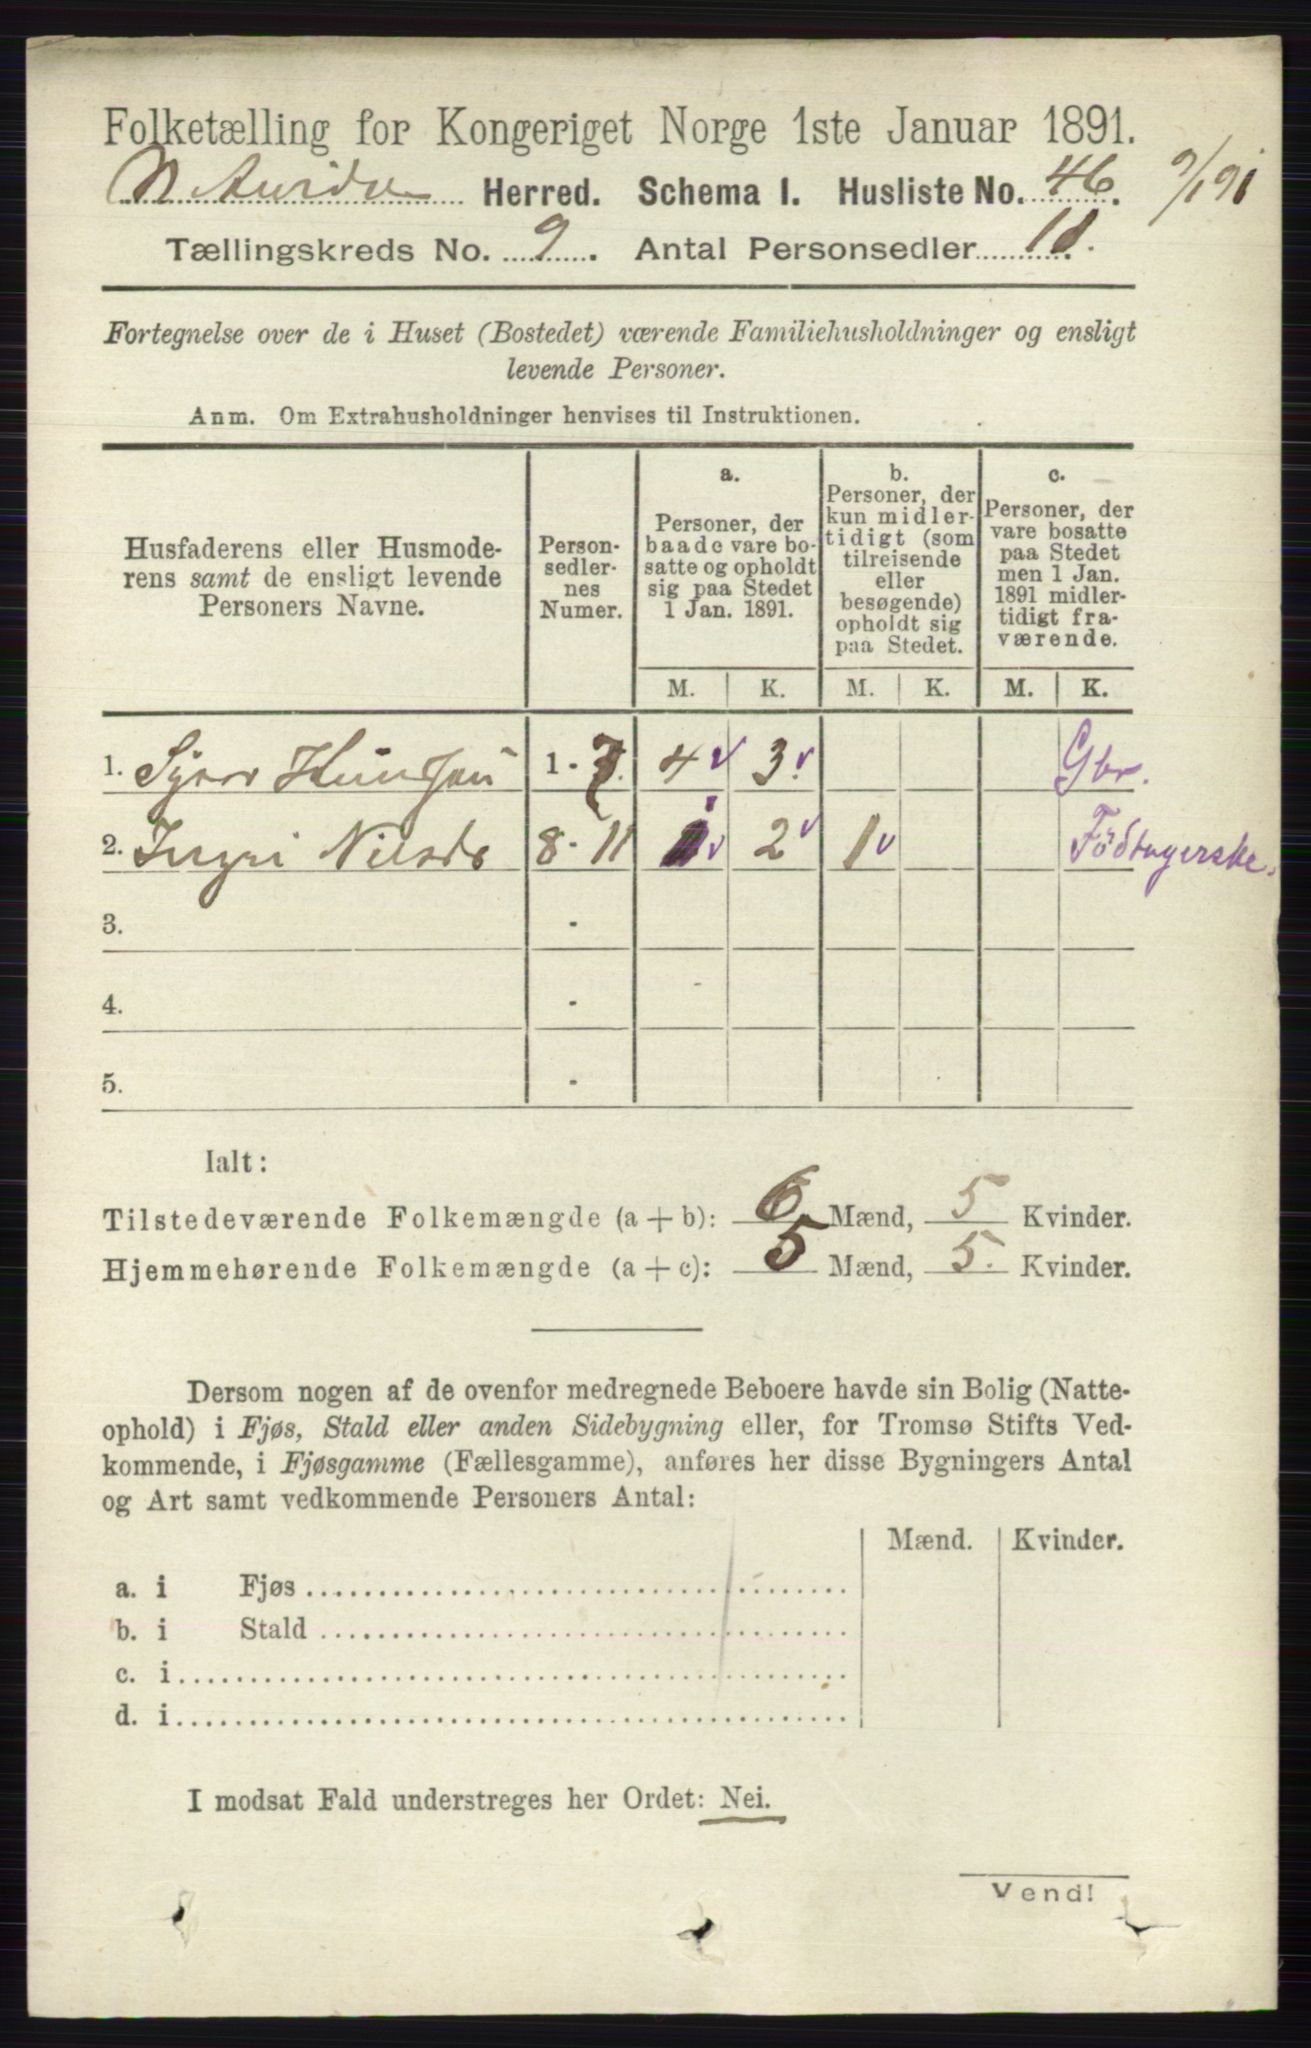 Folketælling for Kongeriget Norge 1ste Januar 1891.
N. Aurdal Herred. Schema I. Husliste No. 46. 9/1 91
Tællingskreds No. 9. Antal Personsedler 11.
Fortegnelse over de i Huset (Bostedet) værende Familiehusholdninger og ensligt
levende Personer.
Anm. Om Extrahusholdninger henvises til Instruktionen.
Husfaderens eller Husmode-
rens samt de ensligt levende
Personers Navne.
Person-
sedler-
nes
Numer.
a.
Personer, der
baade vare bo-
satte og opholdt
sig paa Stedet
1 Jan. 1891.
b.
Personer, der
kun midler-
tidigt (som
tilreisende
eller
besøgende)
opholdt sig
paa Stedet.
c.
Personer, der
vare bosatte
paa Stedet
men 1 Jan.
1891 midler-
tidigt fra-
værende.
M. K. M. K. M. K.
1. 1 - 7. 4 v 3. v Gbr.
2. Ingri Nilsdr 8 - 11 1 v 2 v 1 v Födtagerske.
3. -
4. -
5. -
Ialt:
Tilstedeværende Folkemængde (a + b): 6 Mænd, 5 Kvinder.
Hjemmehørende Folkemængde (a + c): 5 Mænd, 5. Kvinder.
Dersom nogen af de ovenfor medregnede Beboere havde sin Bolig (Natte-
ophold) i Fjøs, Stald eller anden Sidebygning eller, for Tromsø Stifts Ved-
kommende, i Fjøsgamme (Fællesgamme), anføres her disse Bygningers Antal
og Art samt vedkommende Personers Antal:
Mænd. Kvinder.
a. i Fjøs
b. i Stald
c. i
d. i
I modsat Fald understreges her Ordet: Nei.
Vend!